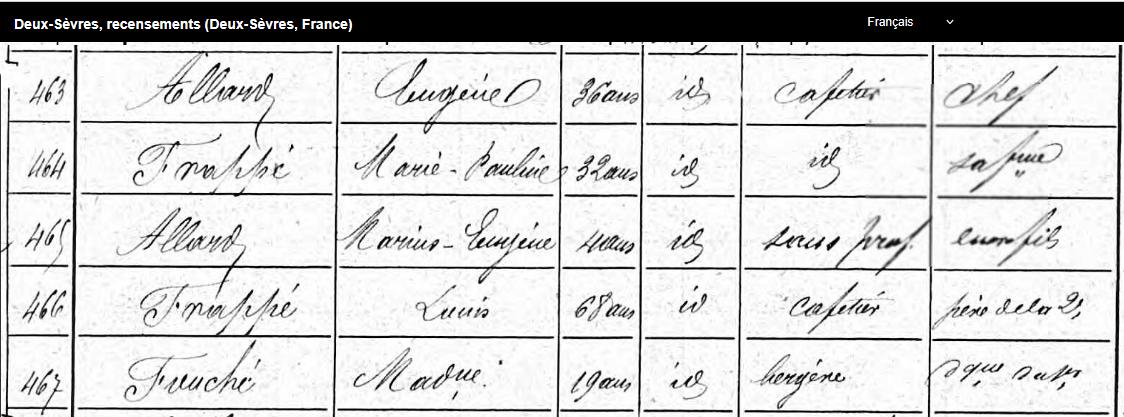 Deux-Sèvres, recensements (Deux-Sèvres, France) Français
463 Allard Eugène 36 ans id cafetier chef
464 Frappé Marie-Pauline 32 ans id id sa fme
465 Allard Marius-Eugène 4 ans id sans prof. leur fils
466 Frappé Louis 68 ans id cafetier père de la 2,
467 Fouché 19 ans id bergère dque